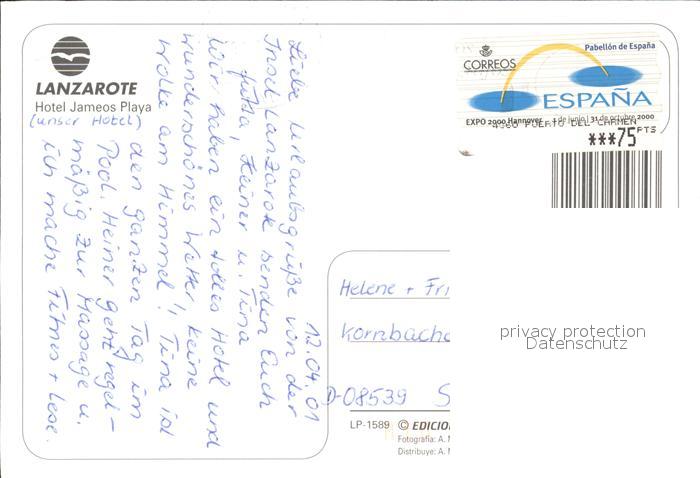 LANZAROTE
Hotel Jameos Playa
(unser Hotel)
12.04.01
Liebe Urlaubsgrüße von der
Insel Lanzarote senden Euch
Jutta, Heiner u. Tina
Wir haben ein tolles Hotel und
wunderschönes Wetter, keine
Wolke am Himmel! Tina ist
den ganzen Tag im
Pool. Heiner geht regel-
mäßig zur Massage u.
ich mache Fitness + lese.
CORREOS
Pabellón de España
ESPAÑA
EXPO 2000 Hannover 1 de junio | 31 de octubre 2000
4360 PUERTO DEL CARMEN
***75 PTS
Helene + Fri
Kornbach
D-08539 S
privacy protection
Datenschutz
LP-1589 © EDICIO
Fotografía: A. M
Distribuye: A. M